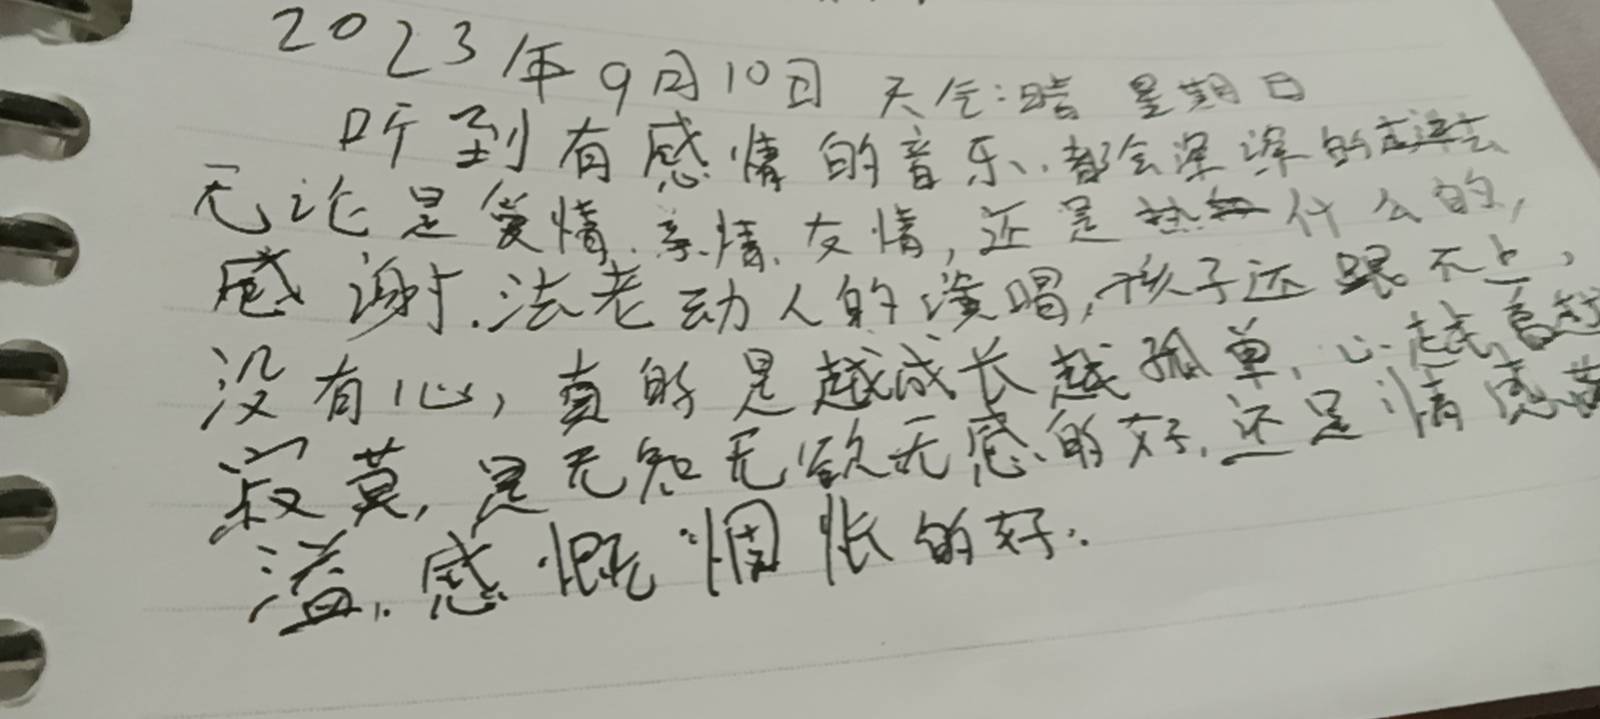 2023年9月10日 天气:晴 星期日
听到有感情的音乐、都会深深的
无论是爱情、亲情、友情,还是什么的,
感谢.法老动人的演唱,孩子还跟不上,
没有心,真的是越成长越孤单,心越高越
寂莫,是无知无欲无感的好,还是情感
溢,感慨惆怅的好.